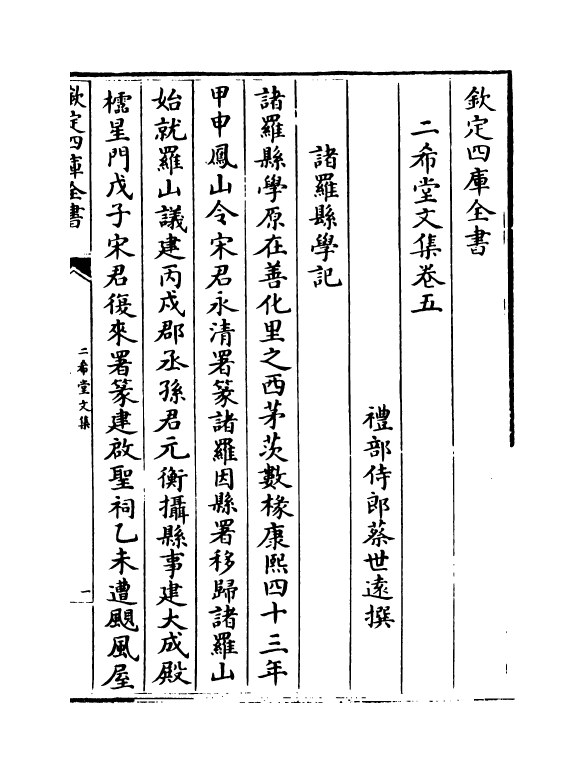 欽定四庫全書
二希堂文集卷五
禮部侍郎蔡世遠撰
諸羅縣學記
諸羅縣學原在善化里之西茅茨數椽康熙四十三年
甲申鳳山令宋君永清署篆諸羅因縣署移歸諸羅山
始就羅山議建丙戍郡丞孫君元衡攝縣事建大成殿
櫺星門戊子宋君復來署篆建啟聖祠乙未遭颶風屋
欽定四庫全書
二希堂文集
一